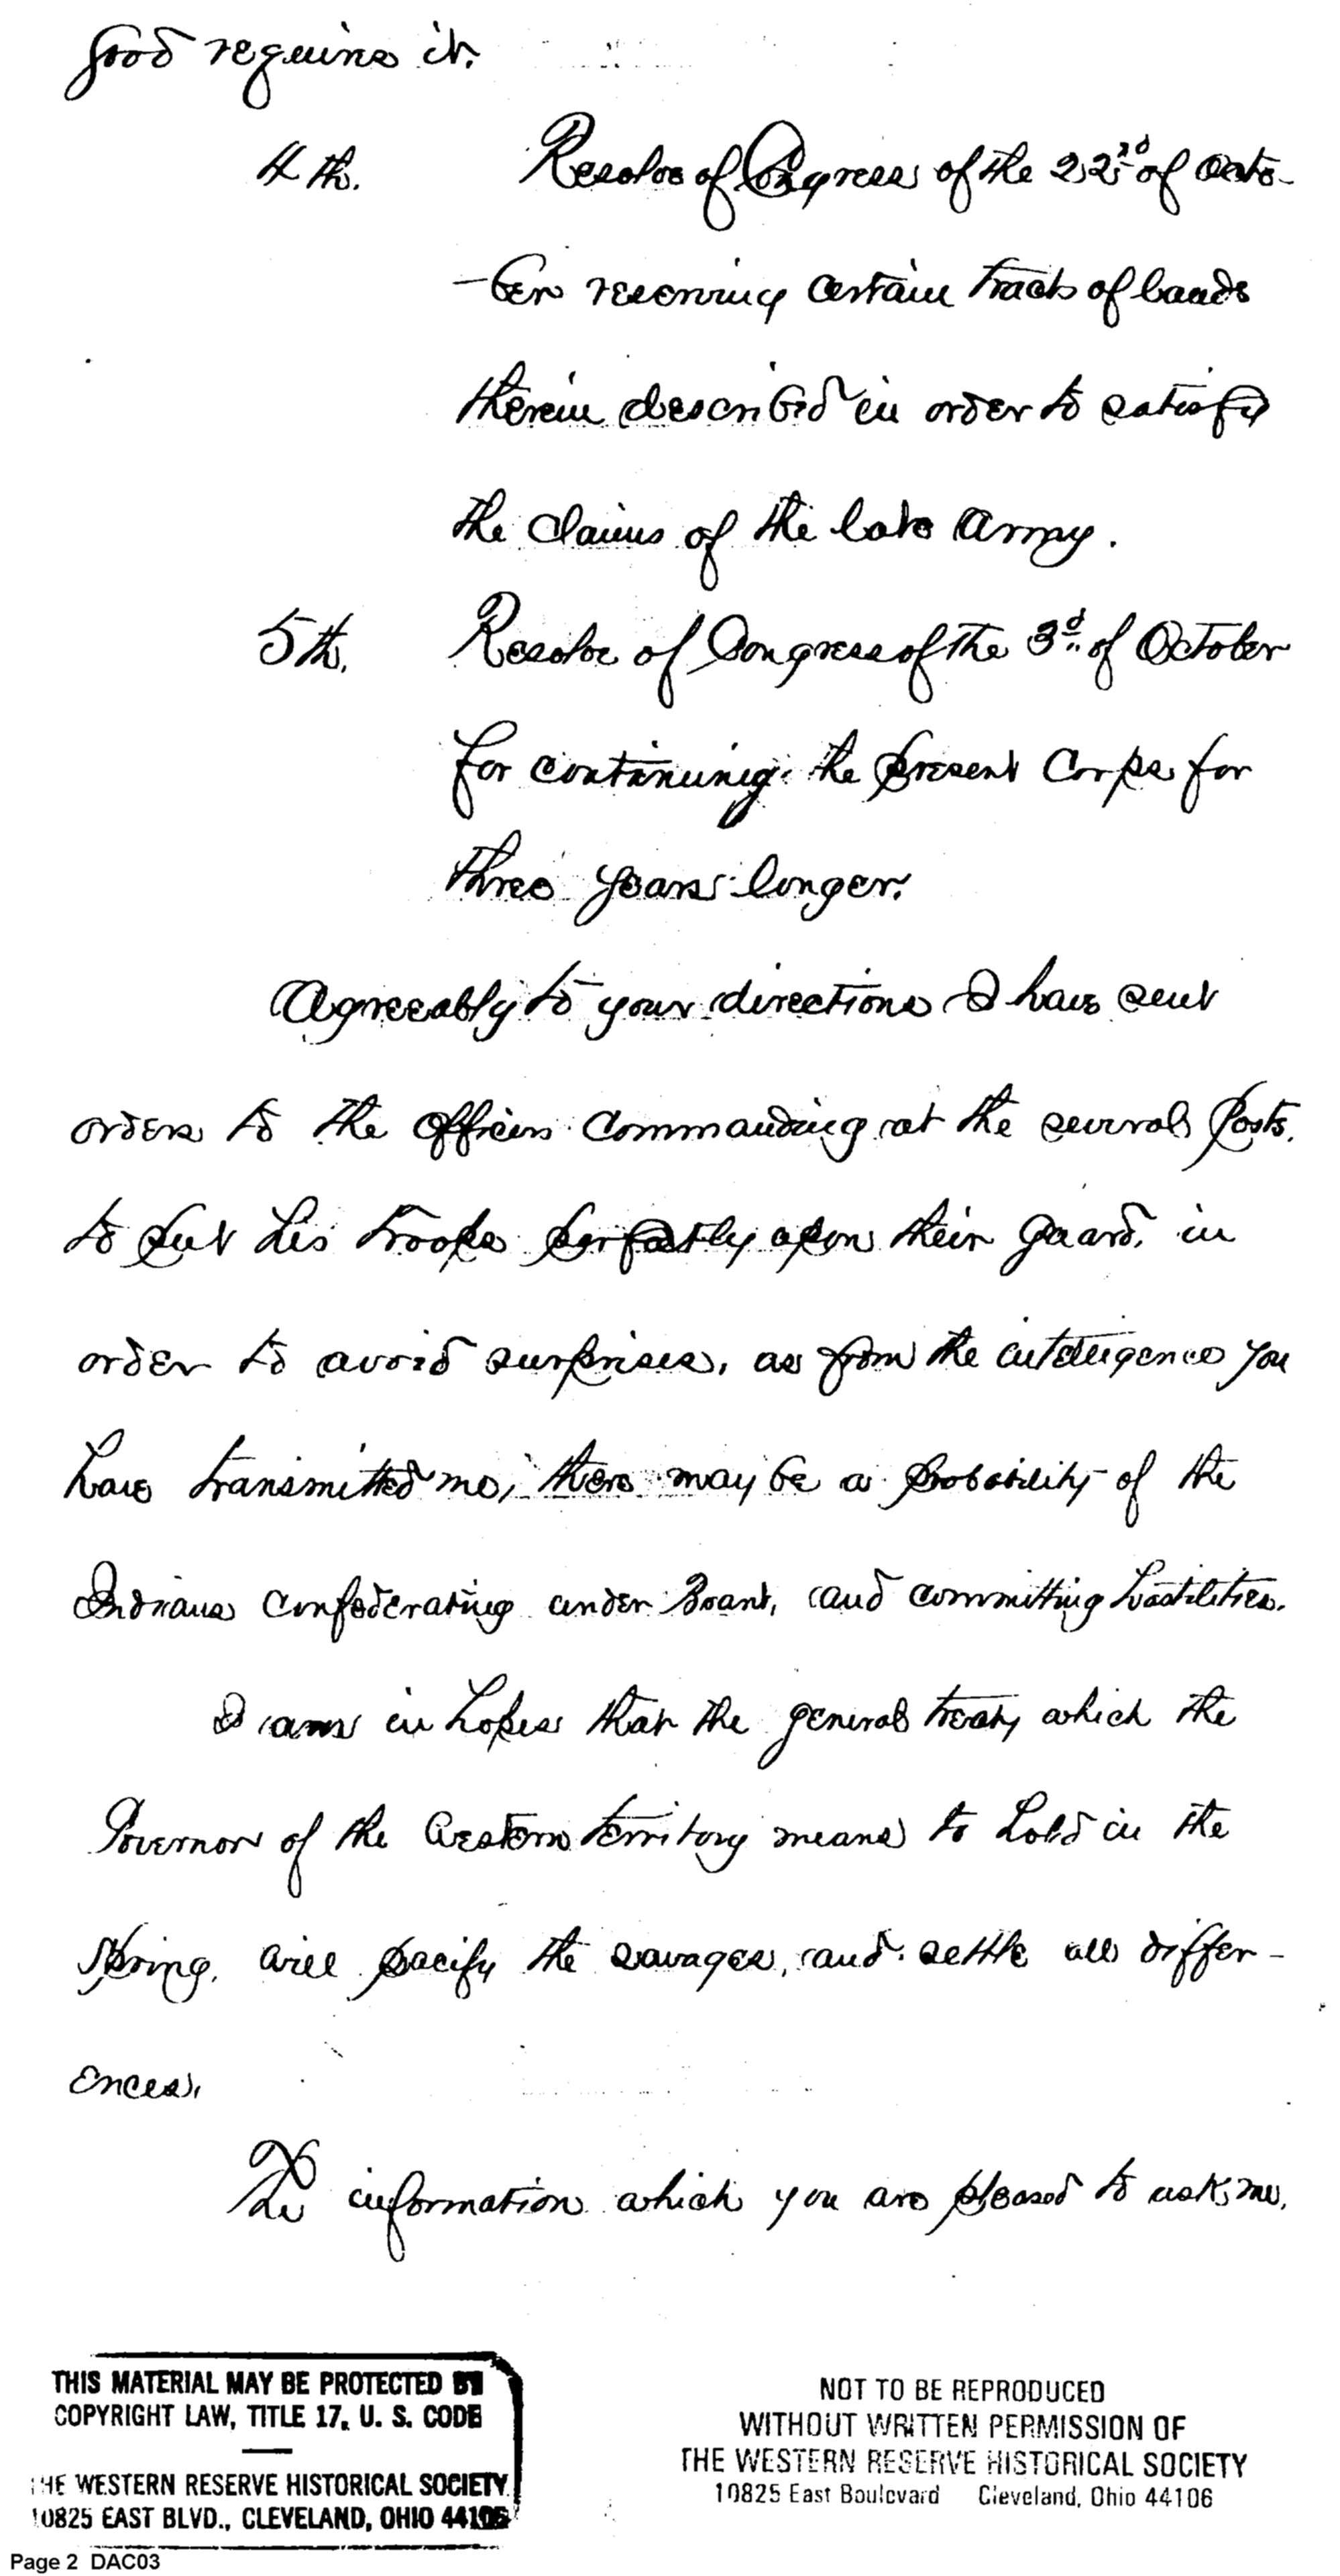 good requires it.
4th. Resolve of Congress of the 22nd of Octo-
-ber reserving certain tracts of lands
therein described in order to satisfy
the claims of the late Army.
5th. Resolve of Congress of the 3d. of October
for continuing the present Corps for
three years longer.
Agreeably to your directions I have sent
orders to the Officers Commanding at the several Posts.
to put his troops perfectly upon their guard, in
order to avoid surprises, as from the intelligence you
have transmitted me, there may be a probability of the
Indians confederating under Brant, and committing hostilities.
I am in hopes that the general treaty which the
Governor of the Western territory means to hold in the
Spring, will pacify the savages, and settle all differ-
ences.
The information which you are pleased to ask me,
THIS MATERIAL MAY BE PROTECTED BY
COPYRIGHT LAW, TITLE 17, U. S. CODE
THE WESTERN RESERVE HISTORICAL SOCIETY
10825 EAST BLVD., CLEVELAND, OHIO 44106
NOT TO BE REPRODUCED
WITHOUT WRITTEN PERMISSION OF
THE WESTERN RESERVE HISTORICAL SOCIETY
10825 East Boulevard Cleveland, Ohio 44106
Page 2 DAC03